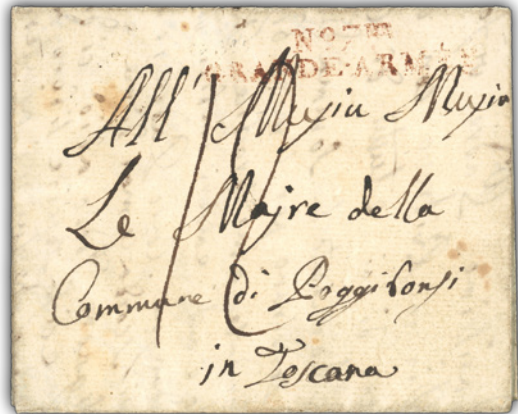 GRANDE-ARMÉE
All' Muxiu Muxiu
Le Majre della
Commune di Poggibonsi
in Toscana